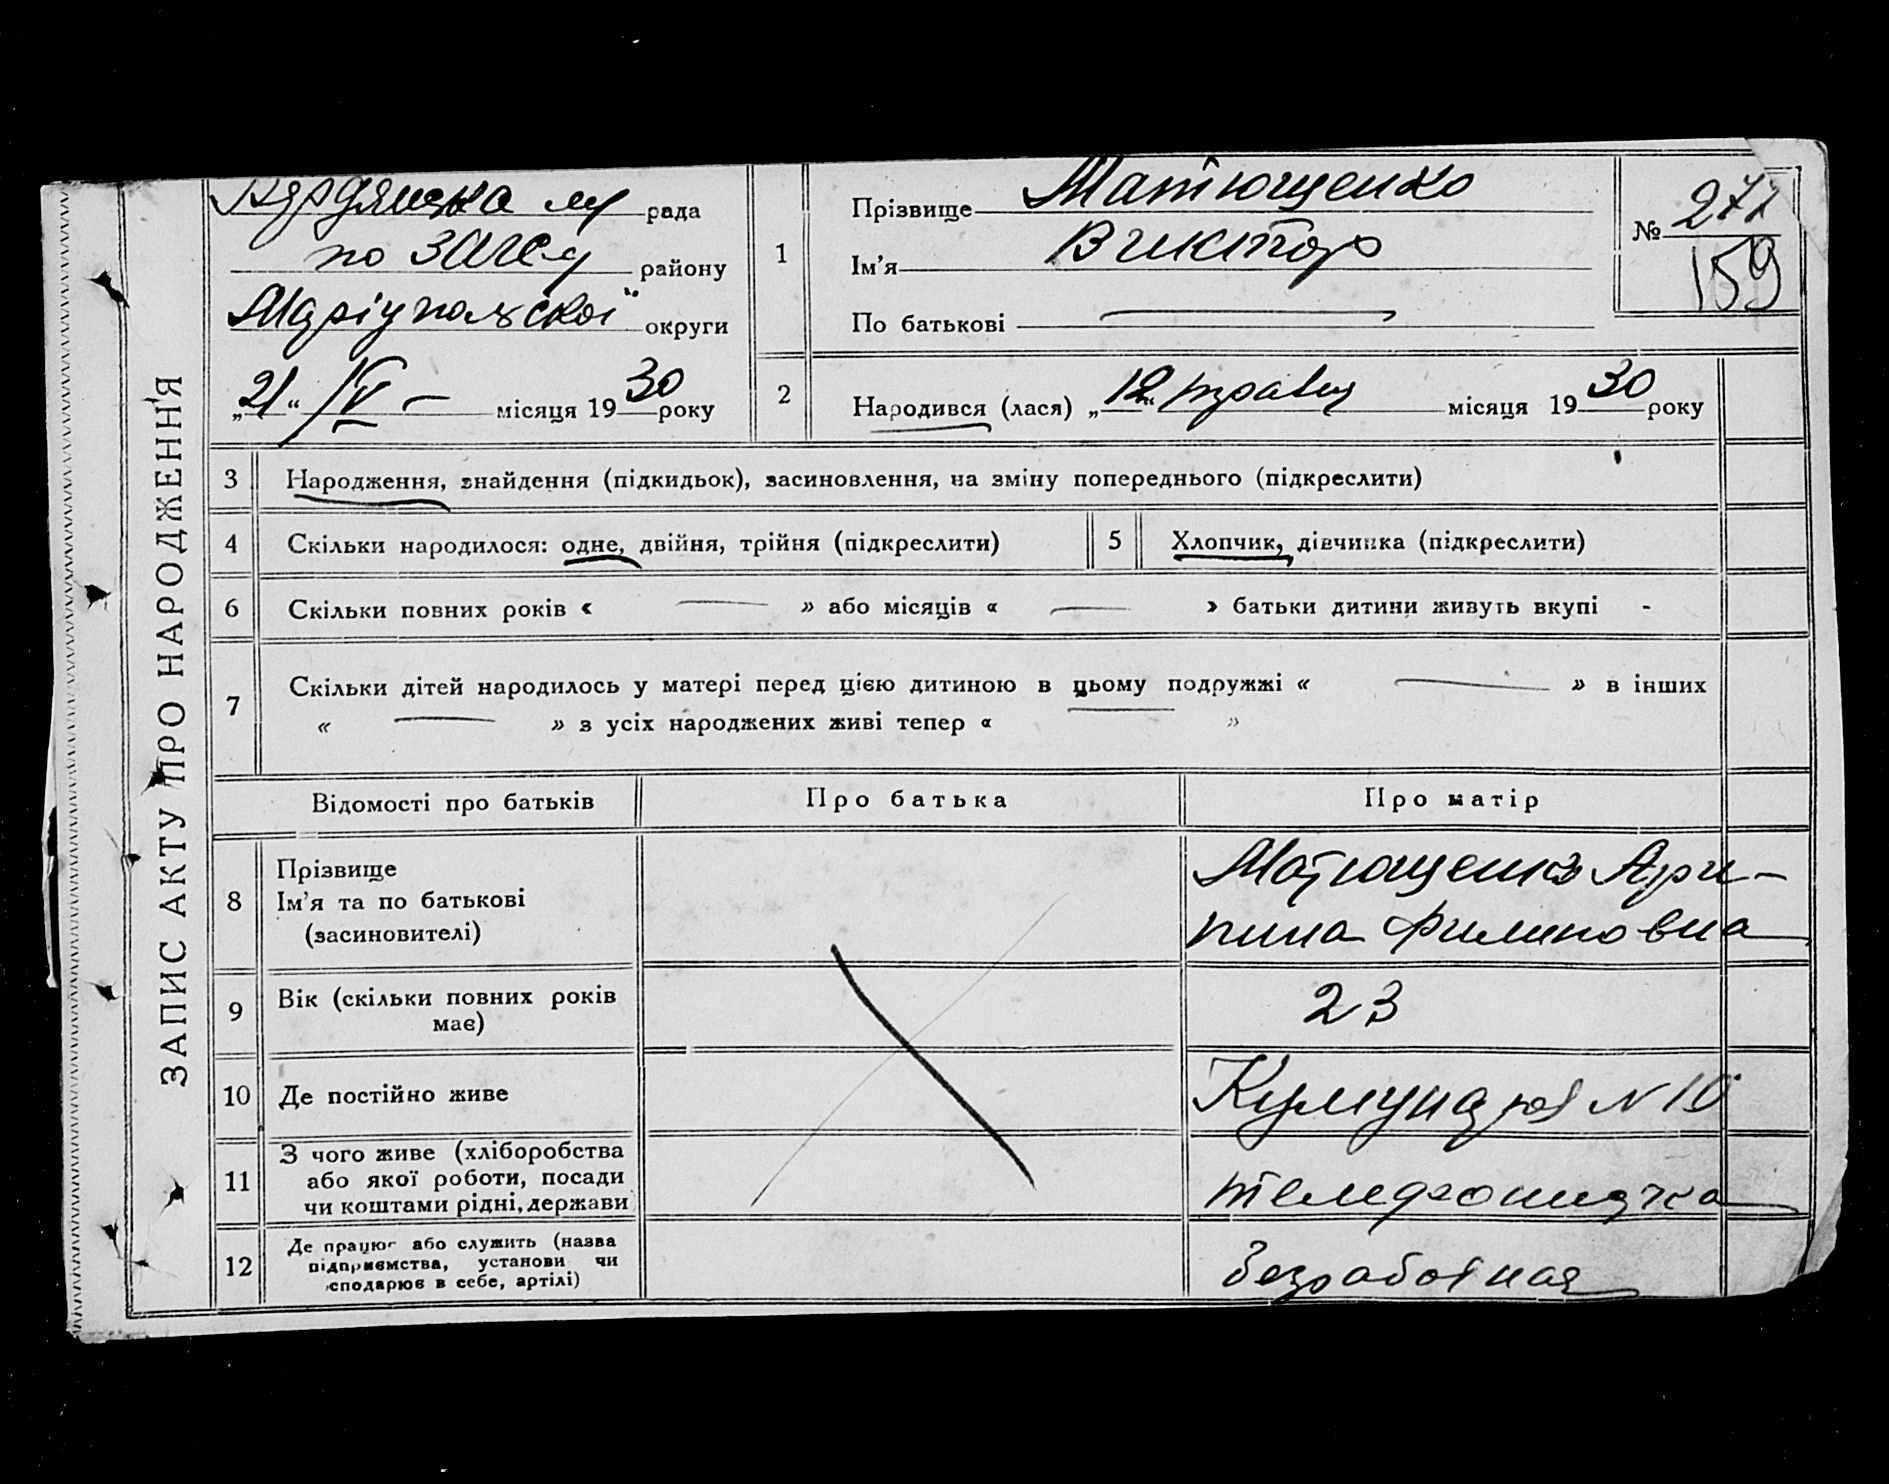 ЗАПИС АКТУ ПРО НАРОДЖЕННЯ
Бердянська м рада
по загсу району
Маріупольскої округи
„21“ IV — місяця 1930 року
1
Прізвище Матющенко
Ім’я Виктор
По батькові
№ 277
159
2
Народився (лася) „12“ травня місяця 1930 року
3 Народження, знайдення (підкидьок), засиновлення, на зміну попереднього (підкреслити)
4 Скільки народилося: одне, двійня, трійня (підкреслити)
5 Хлопчик, дівчинка (підкреслити)
6 Скільки повних років « — » або місяців « — » батьки дитини живуть вкупі -
7 Скільки дітей народилось у матері перед цією дитиною в цьому подружжі « — » в інших
« — » з усіх народжених живі тепер « — »
Відомості про батьків
Про батька
Про матір
8 Прізвище
Ім’я та по батькові
(засиновителі)
Матющенко Агри-
пина Филиповна
9 Вік (скільки повних років
має)
23
10 Де постійно живе
N 10
11 З чого живе (хліборобства
або якої роботи, посади
чи коштами рідні, держави
телефонистка
12 Де працює або служить (назва
підприємства, установи чи
сподарює в себе, артілі)
безработная